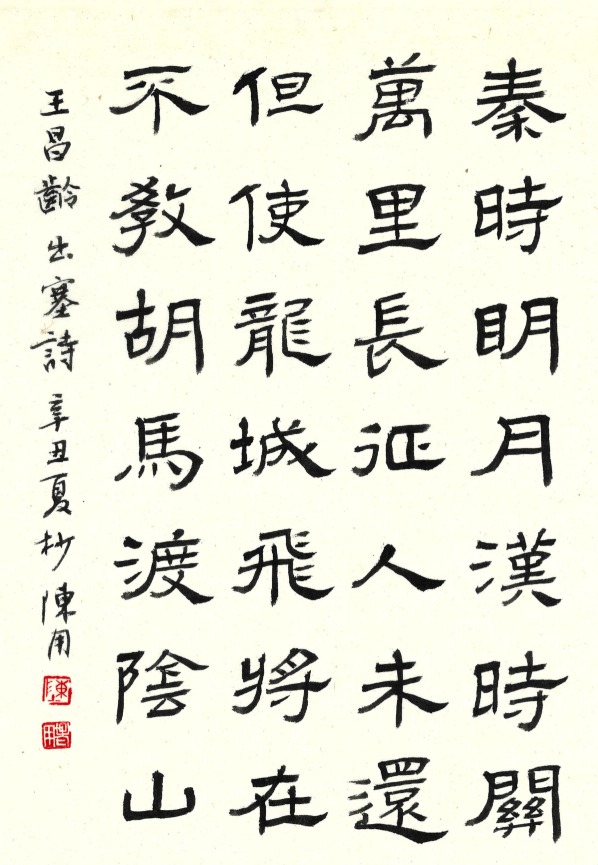 秦時明月漢時關
萬里長征人未還
但使龍城飛將在
不教胡馬渡陰山
王昌齡出塞詩辛丑夏杪陳用